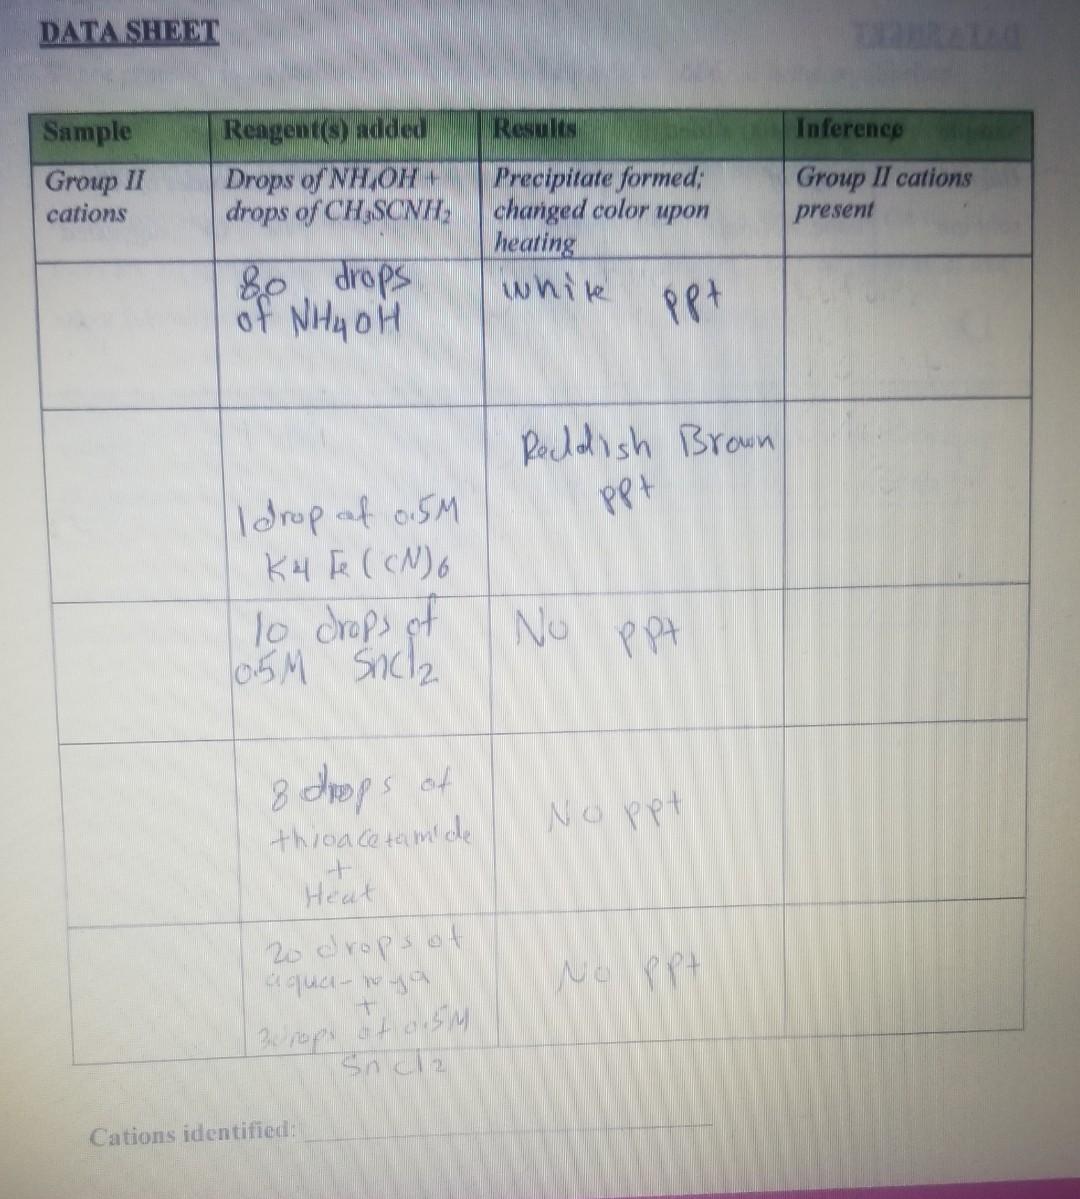 DATA SHEET
Sample
Reagent(s) added
Results
Inference
Group II
cations
Drops of NH4OH +
drops of CH3SCNH2
Precipitate formed;
changed color upon
heating
Group II cations
present
80 drops
of NH4OH
white ppt
1 drop of 0.5M
K4 Fe(CN)6
Reddish Brown
ppt
10 drops of
0.5M SnCl2
No ppt
8 drops of
thioacetamide
+
Heat
No ppt
20 drops of
aqua-
+
3drops of 0.5M
SnCl2
No ppt
Cations identified: